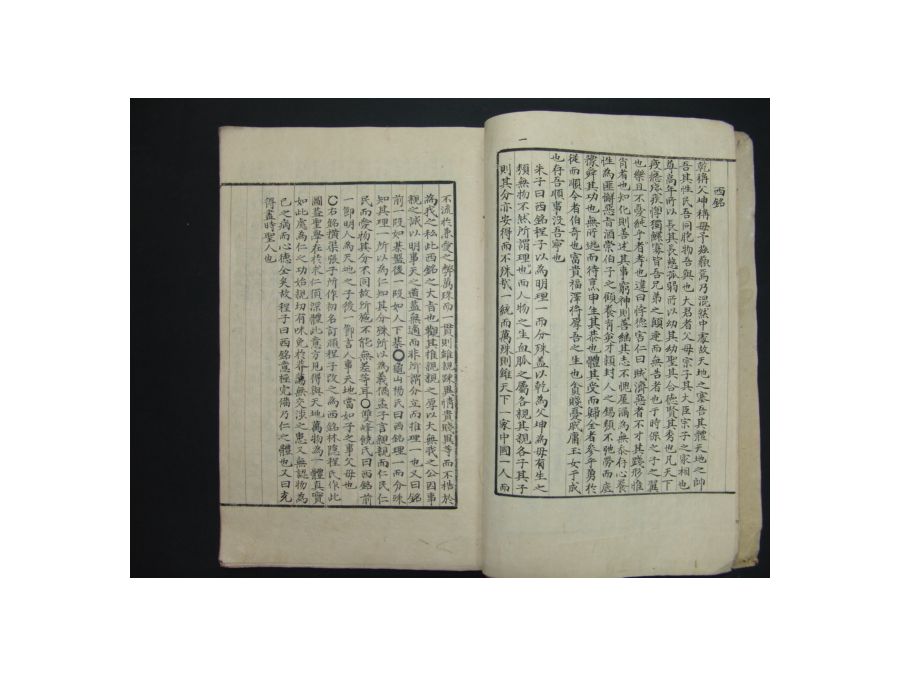 西銘
乾稱父坤稱母予玆藐焉乃混然中處故天地之塞吾其體天地之帥
吾其性民吾同胞物吾與也大君者父母宗子其大臣宗子之家相也
尊高年所以長其長慈孤弱所以幼其幼聖其合德賢其秀也凡天下
疲癃殘疾惸獨鰥寡皆吾兄弟之顚連而無告者也于時保之子之翼
也樂且不憂純乎孝者也違曰悖德害仁曰賊濟惡者不才其踐形惟
肖者也知化則善述其事窮神則善繼其志不愧屋漏爲無忝存心養
性爲匪懈惡旨酒崇伯子之顧養育英才潁封人之錫類不弛勞而底
豫舜其功也無所逃而待烹申生其恭也體其受而歸全者參乎勇於
從而順令者伯奇也富貴福澤將厚吾之生也貧賤憂戚庸玉女于成
也存吾順事沒吾寧也
朱子曰西銘程子以爲明理一而分殊盖以乾爲父坤爲母有生之
類無物不然所謂理一也而人物之生血脉之屬各親其親各子其子
則其分亦安得而不殊哉一統而萬殊則雖天下一家中國一人而
一
不流於兼愛之弊萬殊而一貫則雖親踈異情貴賤異等而不梏於
爲我之私此西銘之大旨也觀其推親親之厚以大無我之公因事
親之誠以明事天之道盖無適而非所謂分立而推理一也又曰銘
前一段如棊盤後一段如人下棊○龜山楊氏曰西銘理一而分殊
知其理一所以爲仁知其分殊所以爲義猶孟子言親親而仁民仁
民而愛物其分不同故所施不能無差等耳○雙峰饒氏曰西銘前
一節明人爲天地之子後一節言人事天地當如子之事父母也
○右銘橫渠張子所作初名訂頑程子改之爲西銘林隱程氏作此
圖盖聖學在於求仁須深體此意方見得與天地萬物爲一體眞實
如此處爲仁之功始親切有味免於莽蕩無交涉之患又無認物爲
己之病而心德全矣故程子曰西銘意極完備乃仁之體也又曰充
得盡時聖人也